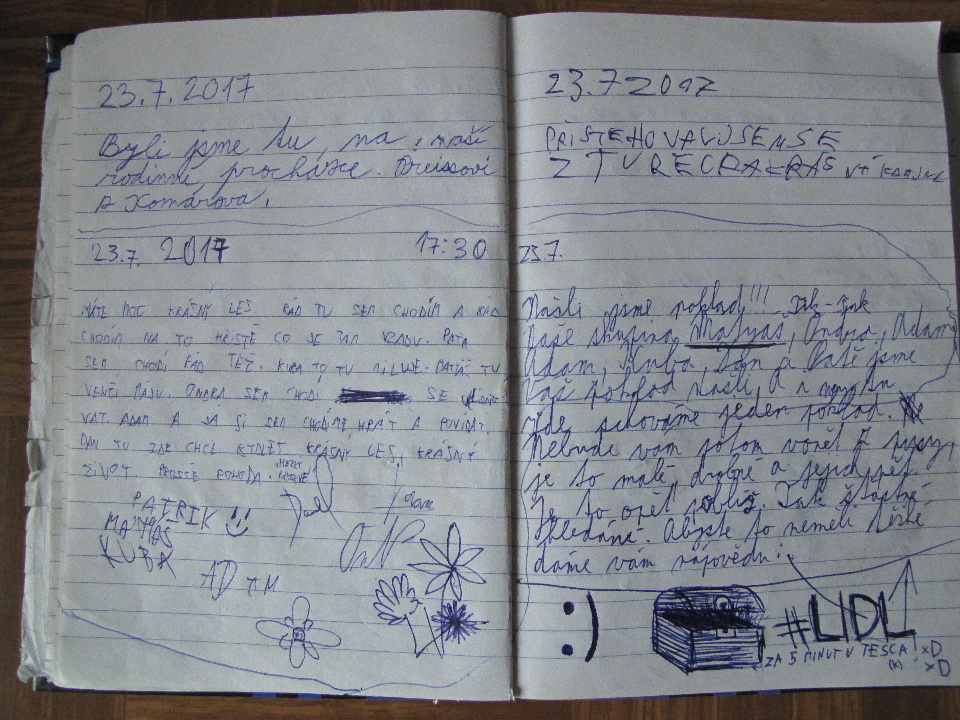 23.7.2017
Byli jsme tu, na naší
rodinné procházce. Dreissovi
a Komárova.
23.7. 2017 17:30
MÁTE MOC KRÁSNÝ LES RÁD TU SEM CHODÍM A RÁD
CHODÍM NA TO HŘIŠTĚ CO JE TAM VZADU. PAŤA
SEM CHODÍ RÁD TEŽ. KUBA TO TU MILUJE. MATÁŠ TU
VENČÍ MÁJU. ONDRA SEM CHODÍ SE
VAT. ADAM A JÁ SI SEM CHODÍME HRÁT A POVÍDAT.
DAN TU ZDE CHCE BYDLET KRÁSNÝ LES, KRÁSNÝ
ŽIVOT. PROSTĚ POHODA.
PATRIK
MATYÁŠ
KUBA
AD
23.7 2017
PŘISTĚHOVALI JSEM SE
Z
23 7.
Našli jsme poklad!!!
Naše skupina, Matyas, Ondra, Adam,
Adam, Kuba, Dan a Paťa jsme
Váš poklad našli, a
zde schováme jeden poklad.
Nebude vám potom vonět z
je to malé, drobné a jejich pět.
Je to opět poblíž. Tak šťastné
hledání. Abyste to neměli těžké
dáme vám nápovědu:
:)
#LIDL!
ZA 5 MINUT U TESCA xD
(K) xD